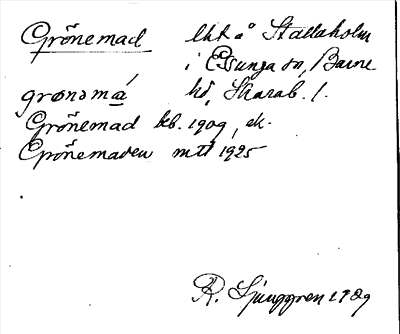 Grönemad lht å Stallaholm
i Essunga sn, Barne
grønəmá hd, Skarab. l.
Grönemad kb. 1909, ek.
Grönemaden mtl 1925
R. Ljunggren 1929